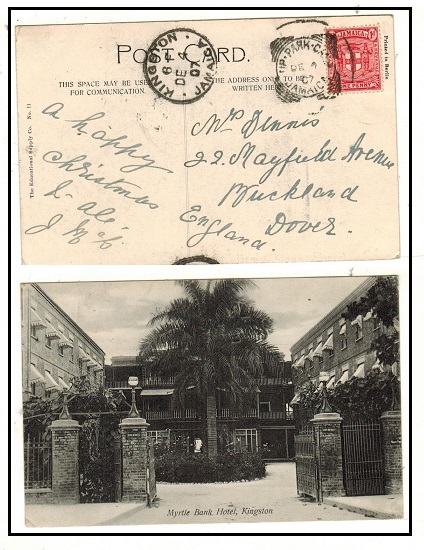 POST CARD.
THIS SPACE MAY BE USED
FOR COMMUNICATION.
THE ADDRESS ONLY TO BE
WRITTEN HERE
KINGSTON
DE 4
07
JAMAICA
PARK
JAMAICA
JAMAICA
ONE PENNY
Printed in Berlin
The Educational Supply Co. No. 11
A happy
Christmas
Mrs Dennis
22 Mayfield Avenue
Buckland
Dover.
England.
Myrtle Bank Hotel, Kingston